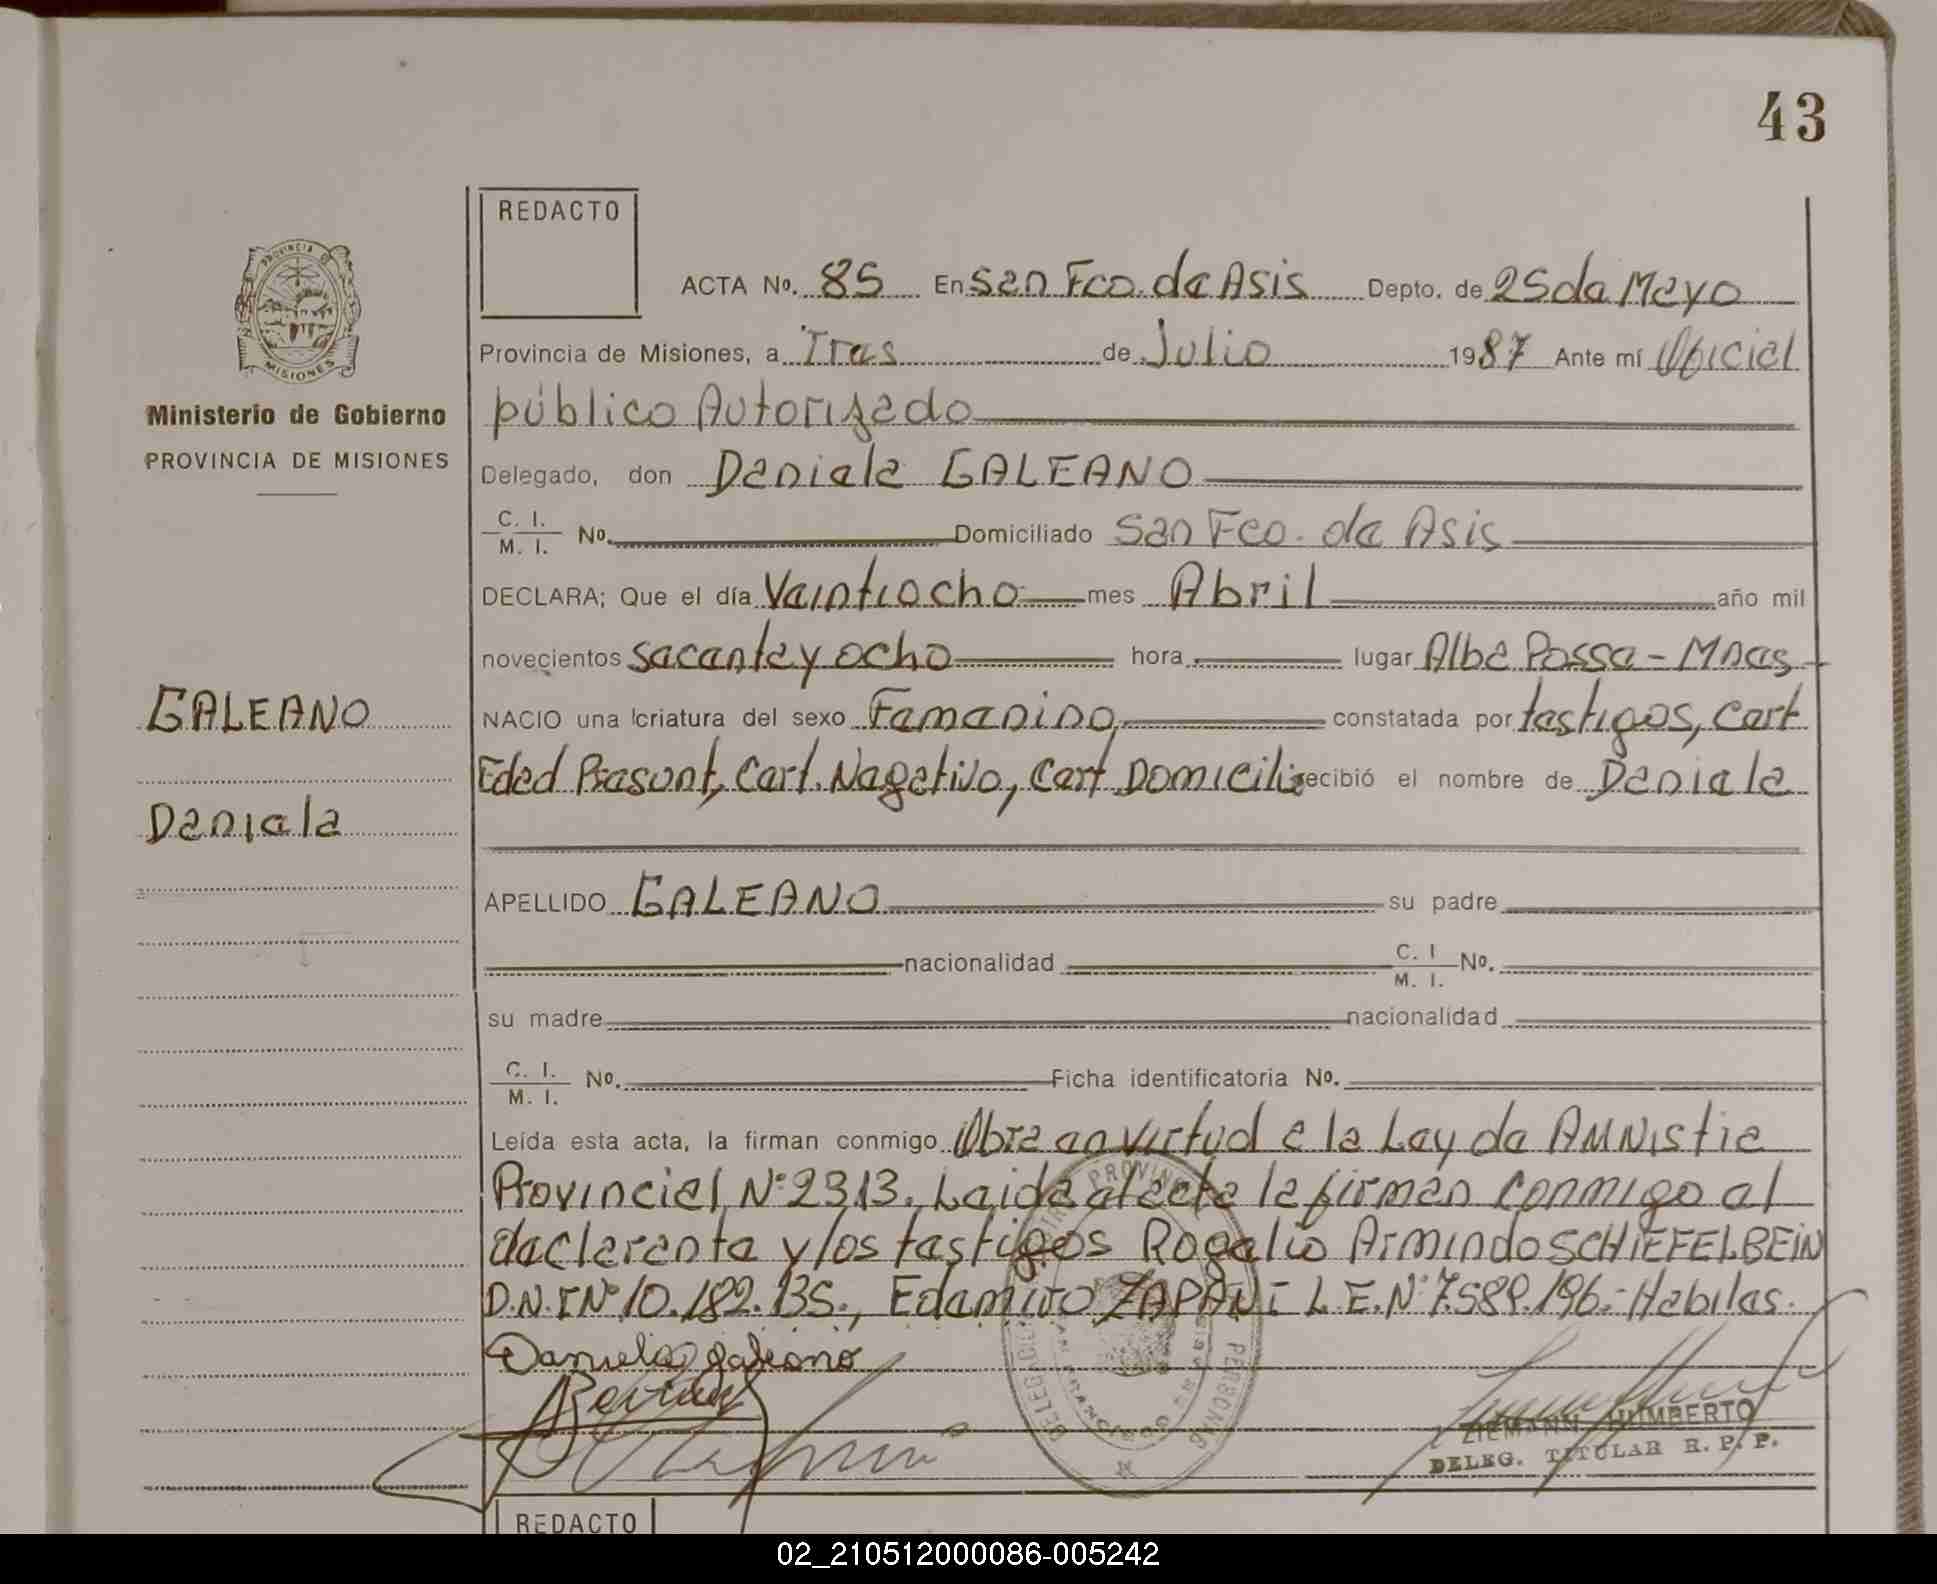 43
REDACTO
ACTA No. 85 En San Fco. de Asis Depto. de 25 de Mayo
Provincia de Misiones, a Tres de Julio 1987 Ante mí Oficial
público Autorizado
Delegado, don Daniela GALEANO
C. I. M. I. No. Domiciliado San Fco. de Asis
DECLARA; Que el día Veintiocho mes Abril año mil
novecientos sesenta y ocho hora lugar Alba Posse - Mnes
NACIO una criatura del sexo Femenino constatada por testigos, Cert
Edad Presunt, Cert. Negativo, Cert Domicili recibió el nombre de Daniela
APELLIDO GALEANO su padre
nacionalidad C. I M. I. No.
su madre nacionalidad
C. I. M. I. No. Ficha identificatoria No.
Leída esta acta, la firman conmigo Obra en virtud a la Ley de AMNistia
Provincial Nº 2313. Leida el acta la firman conmigo el
declarante y los testigos Rogelio Armindo SCHIEFELBEIN
D.N.I Nº 10.182.135., Edemiro ZAPANI L.E. Nº 7.589.196.- Habiles.
Daniela galeano
ZIEMANN HUMBERTO
DELEG. TITULAR R. P. P.
PROVINCIA DE MISIONES
Ministerio de Gobierno
PROVINCIA DE MISIONES
GALEANO
Daniela
REDACTO
02_210512000086-005242